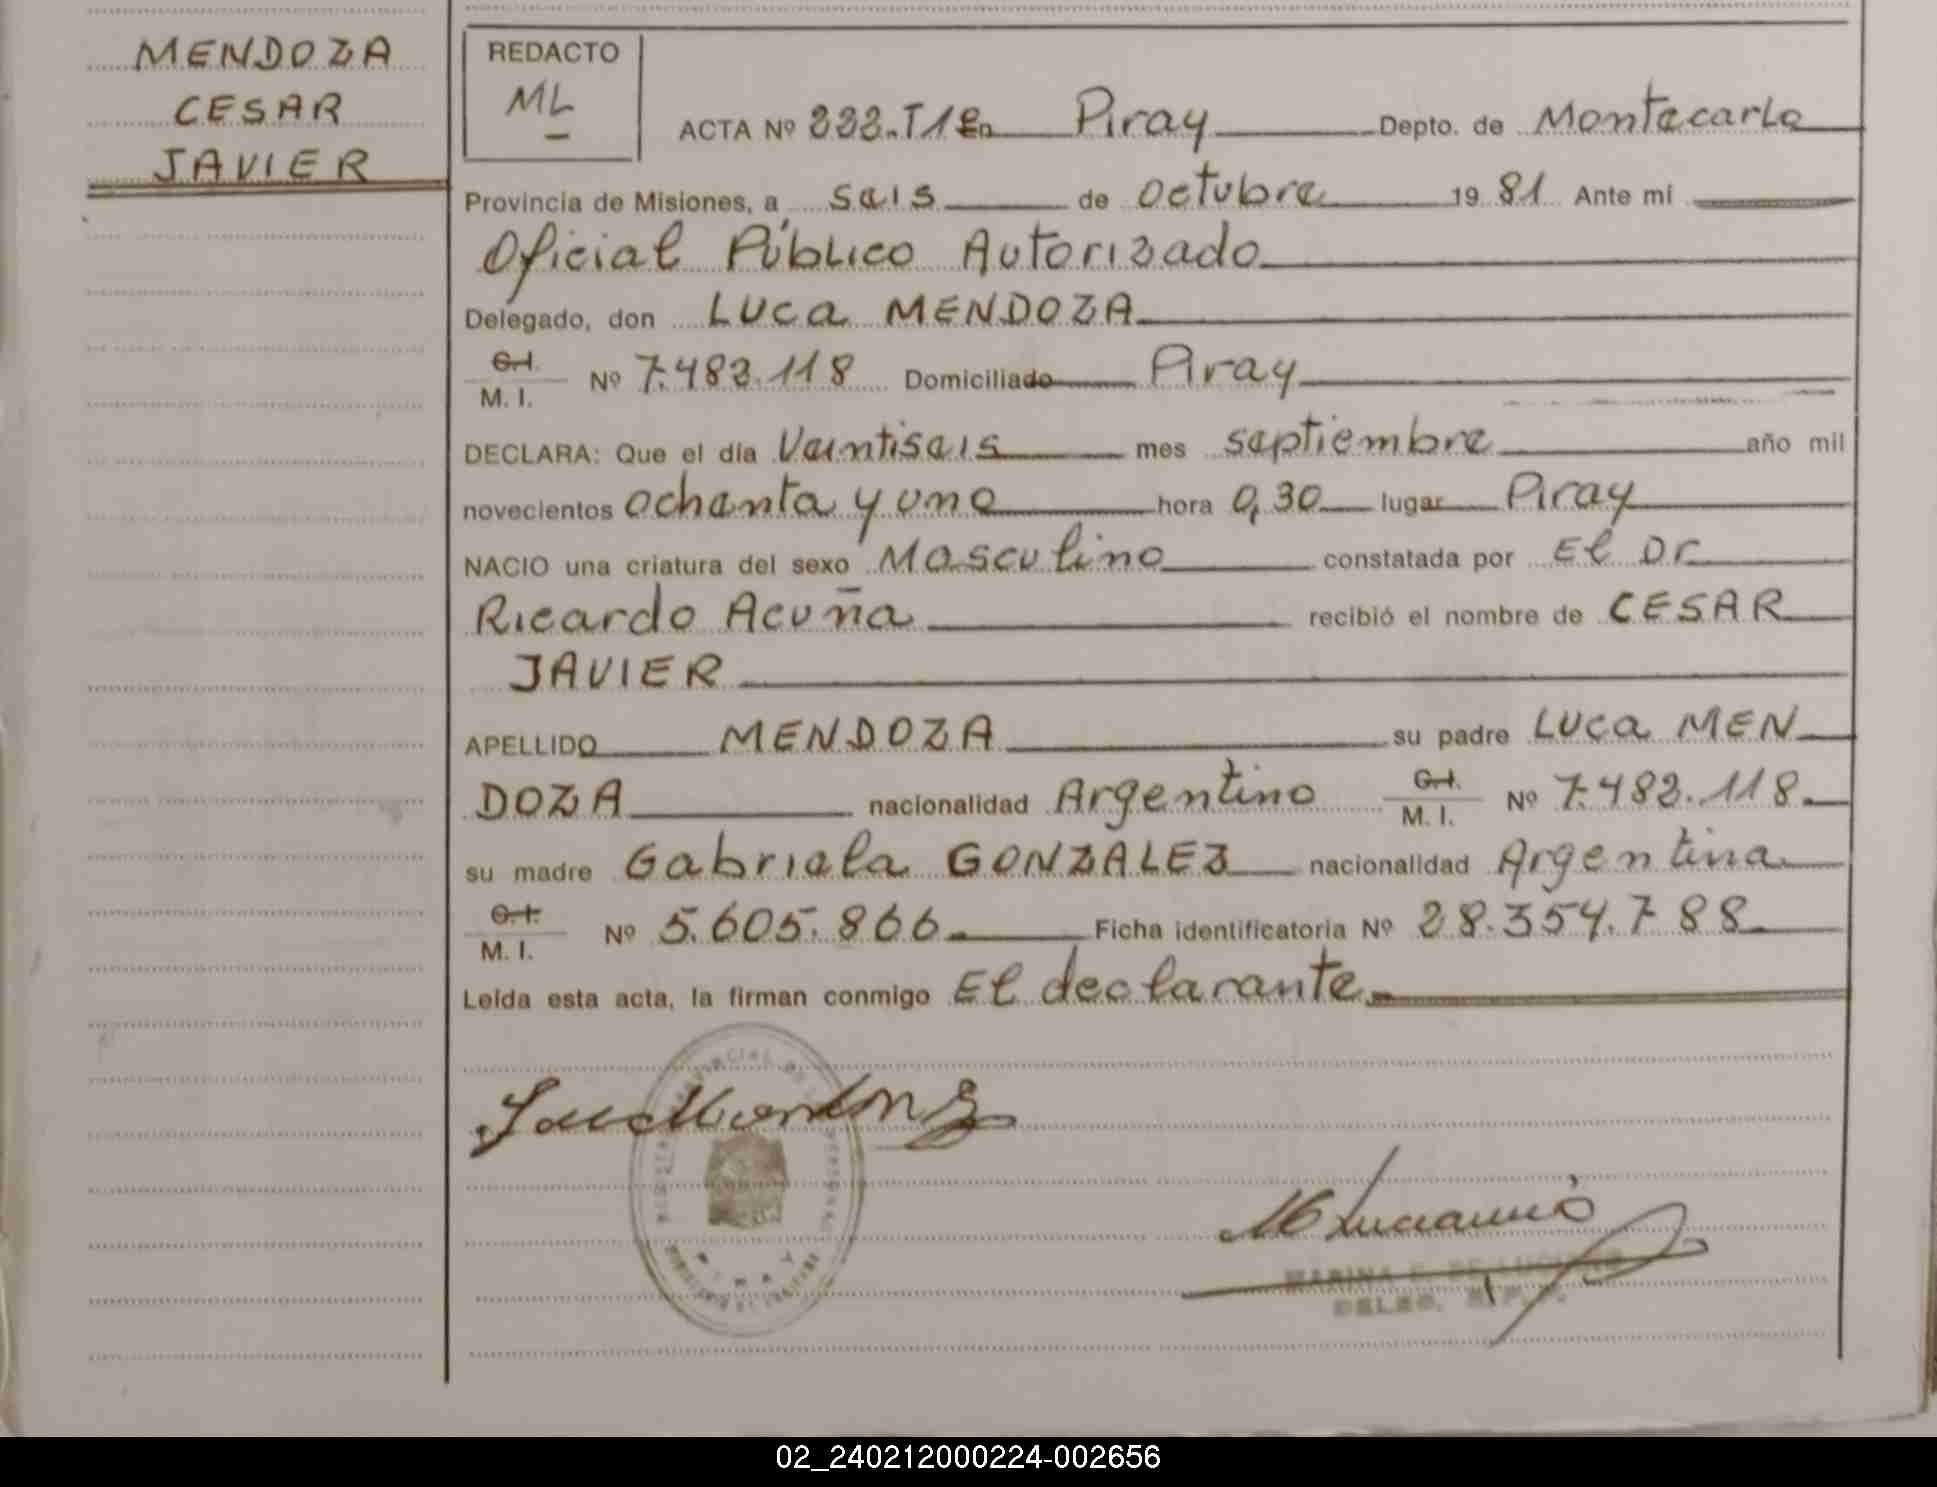 MENDOZA
CESAR
JAVIER
REDACTO
ML
ACTA Nº 222.T1º En Piray Depto. de Montecarlo
Provincia de Misiones, a seis de octubre 19 81 Ante mí
Oficial Público Autorizado
Delegado, don LUCA MENDOZA
C.I.
M. I. Nº 7.482.118 Domiciliado Piray
DECLARA: Que el día Veintiseis mes septiembre año mil
novecientos ochenta y uno hora 0,30 lugar Piray
NACIO una criatura del sexo Masculino constatada por El Dr
Ricardo Acuña recibió el nombre de CESAR
JAVIER
APELLIDO MENDOZA su padre LUCA MEN
DOZA nacionalidad Argentino C.I. M. I. Nº 7.482.118.
su madre Gabriela GONZALEZ nacionalidad Argentina
C.I.
M. I. Nº 5.605.866. Ficha identificatoria Nº 28.354.788
Leída esta acta, la firman conmigo El declarante.
PIRAY
MARINA DE
DELEG.
02_240212000224-002656